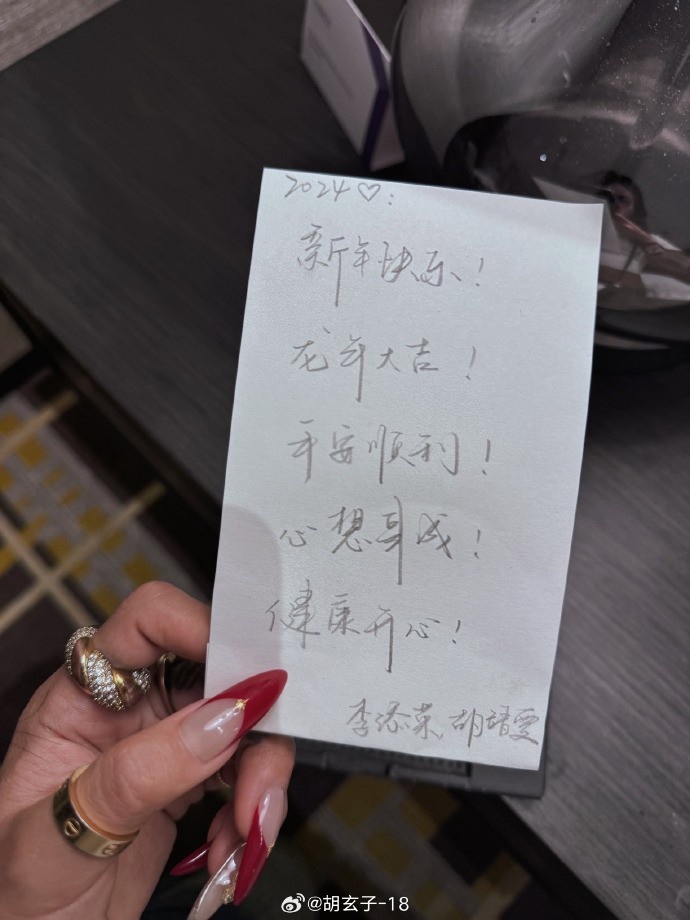 2024♡:
新年快乐!
龙年大吉!
平安顺利!
心想事成!
健康开心!
李添荣、胡靖雯
@胡玄子-18